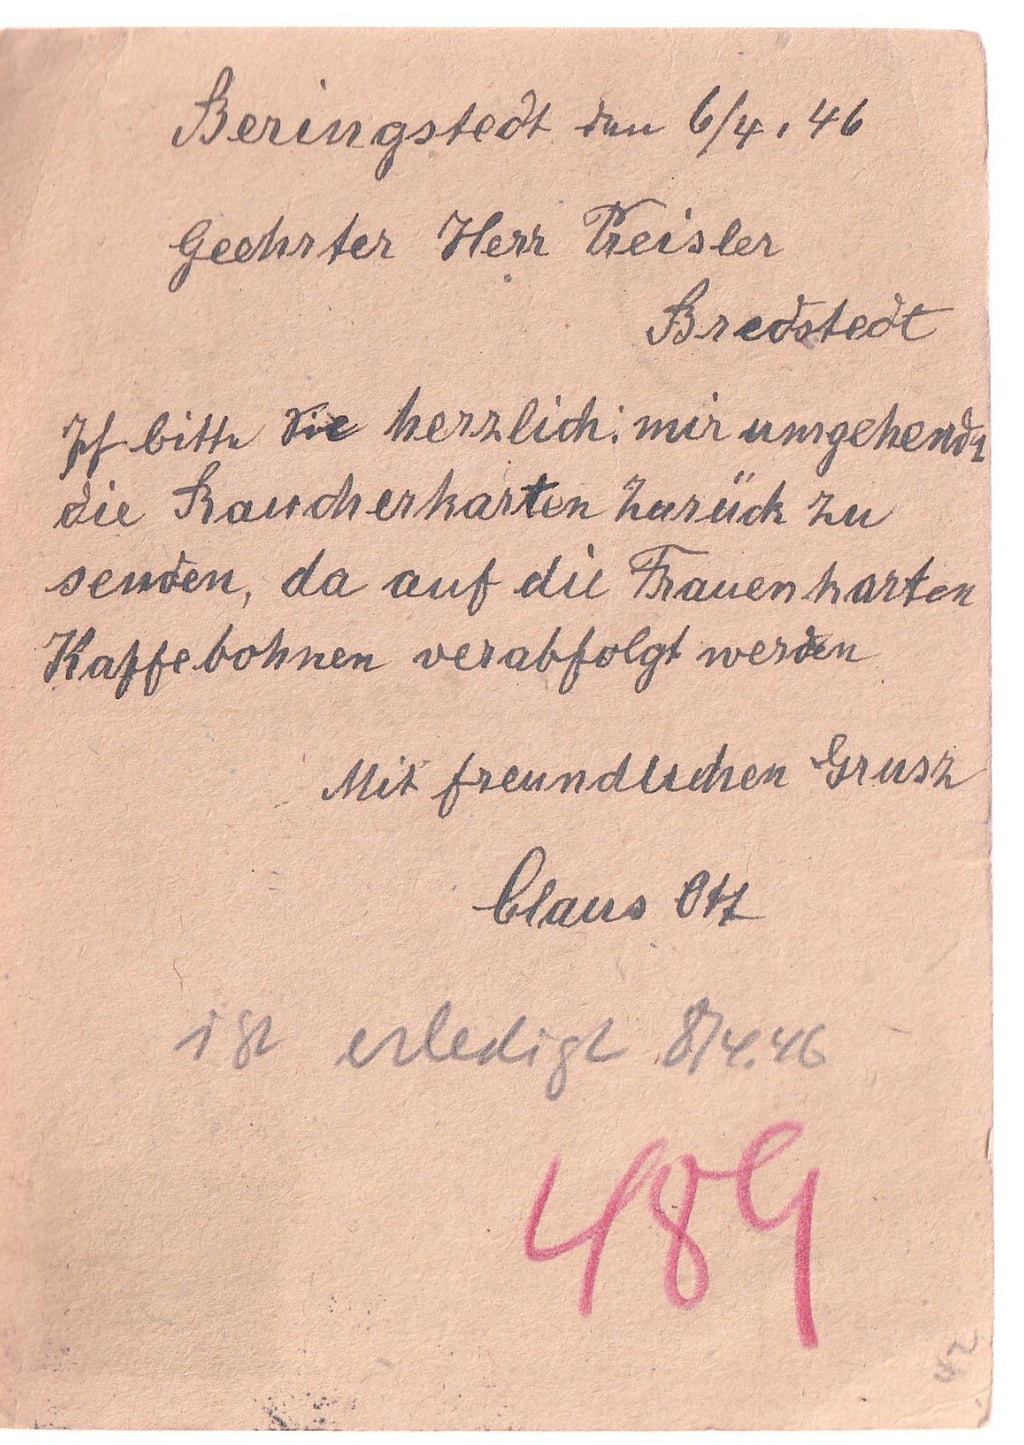 Beringstedt den 6/4. 46
Geehrter Herr Treisler
Bredstedt
Ich bitte Sie herzlich: mir umgehends
die Raucherkarten zurück zu
senden, da auf die Frauenkarten
Kaffebohnen verabfolgt werden
Mit freundlichen Grusz
Claus Ott
ist erledigt 8/4.46
489